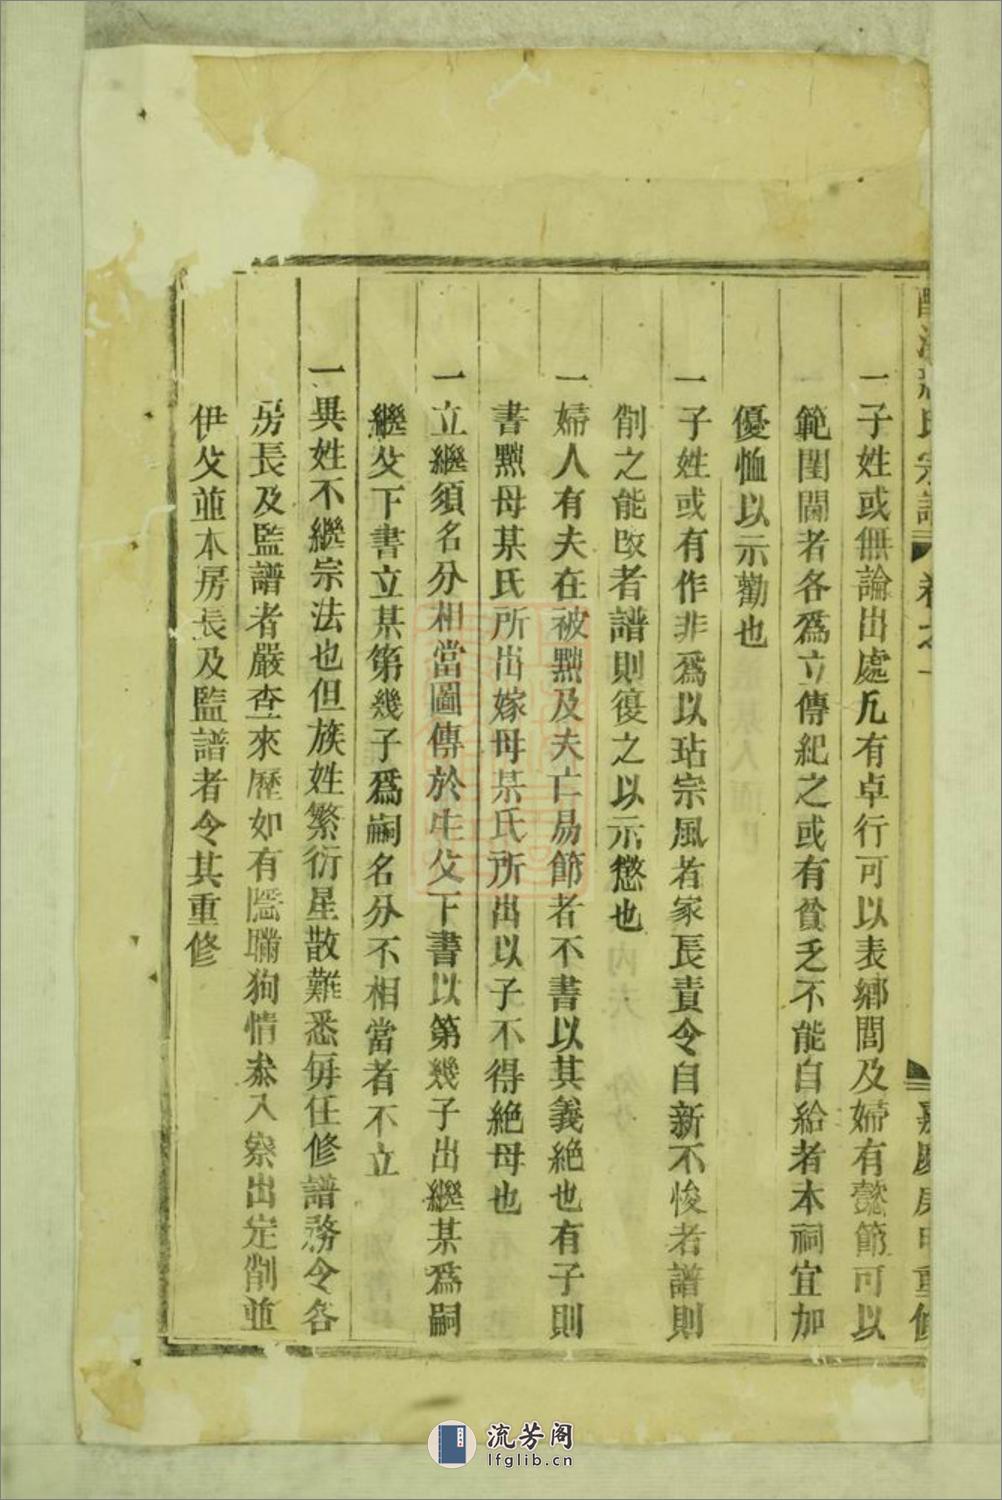 氏宗譜 卷之一 嘉慶庚申重修
一子姓或無論出處凡有卓行可以表鄉閭及婦有懿節可以
範閨閫者各爲立傳紀之或有貧乏不能自給者本祠宜加
優恤以示勸也
一子姓或有作非爲以玷宗風者家長責令自新不悛者譜則
削之能改者譜則復之以示懲也
一婦人有夫在被黜及夫亡易節者不書以其義絕也有子則
書黜母某氏所出嫁母某氏所出以子不得絕母也
一立繼須名分相當圖傳於生父下書以第幾子出繼某爲嗣
繼父下書立某第幾子爲嗣名分不相當者不立
一異姓不繼宗法也但族姓繁衍星散難悉毎任修譜務令各
房長及監譜者嚴查來歷如有隱瞞狥情叅入察出定削並
伊父並本房長及監譜者令其重修
流芳阁
lfglib.cn